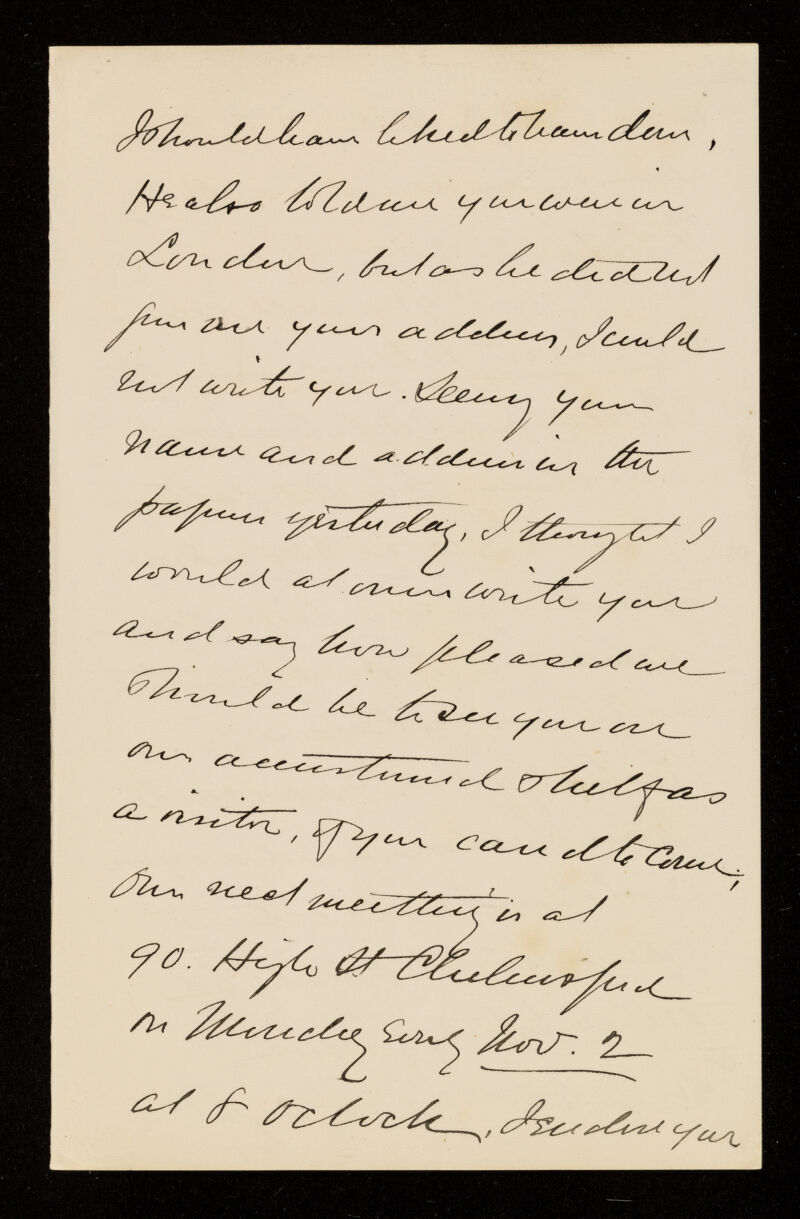 I should have liked to have done,
He also told me you were in
London, but as he did not
give me your address, I could
not write you. Seeing your
name and address in the
papers yesterday, I thought I
would at once write you
and say how pleased we
should be to see you on
our accustomed shelf as
a visitor, if you cared to come;
Our next meeting is at
90. High St Chelmsford
on Monday Evng Nov. 2
at 8 oclock, I enclose you